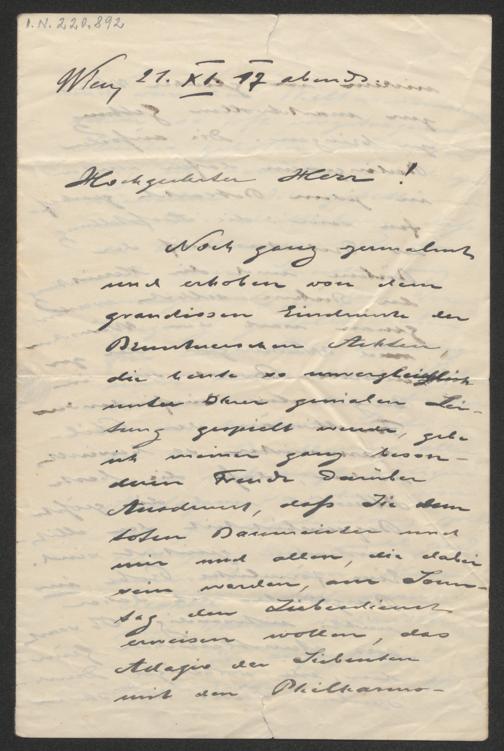 I.N. 220.892
Wien, 21. XI. 17 abends.
Hochgeehrter Herr!
Noch ganz zermalmt
und erhoben von dem
grandiosen Eindrucke der
Brucknerschen Achten,
die heute so unvergleichlich
unter Ihrer genialen Lei-
tung gespielt wurde, gebe
ich meiner ganz beson-
deren Freude darüber
Ausdruck, daß Sie dem
toten Baumeister und
mir und allen, die dabei
sein werden, am Sonn-
tag den Liebesdienst
erweisen wollen, das
Adagio der Siebenten
mit den Philharmo-